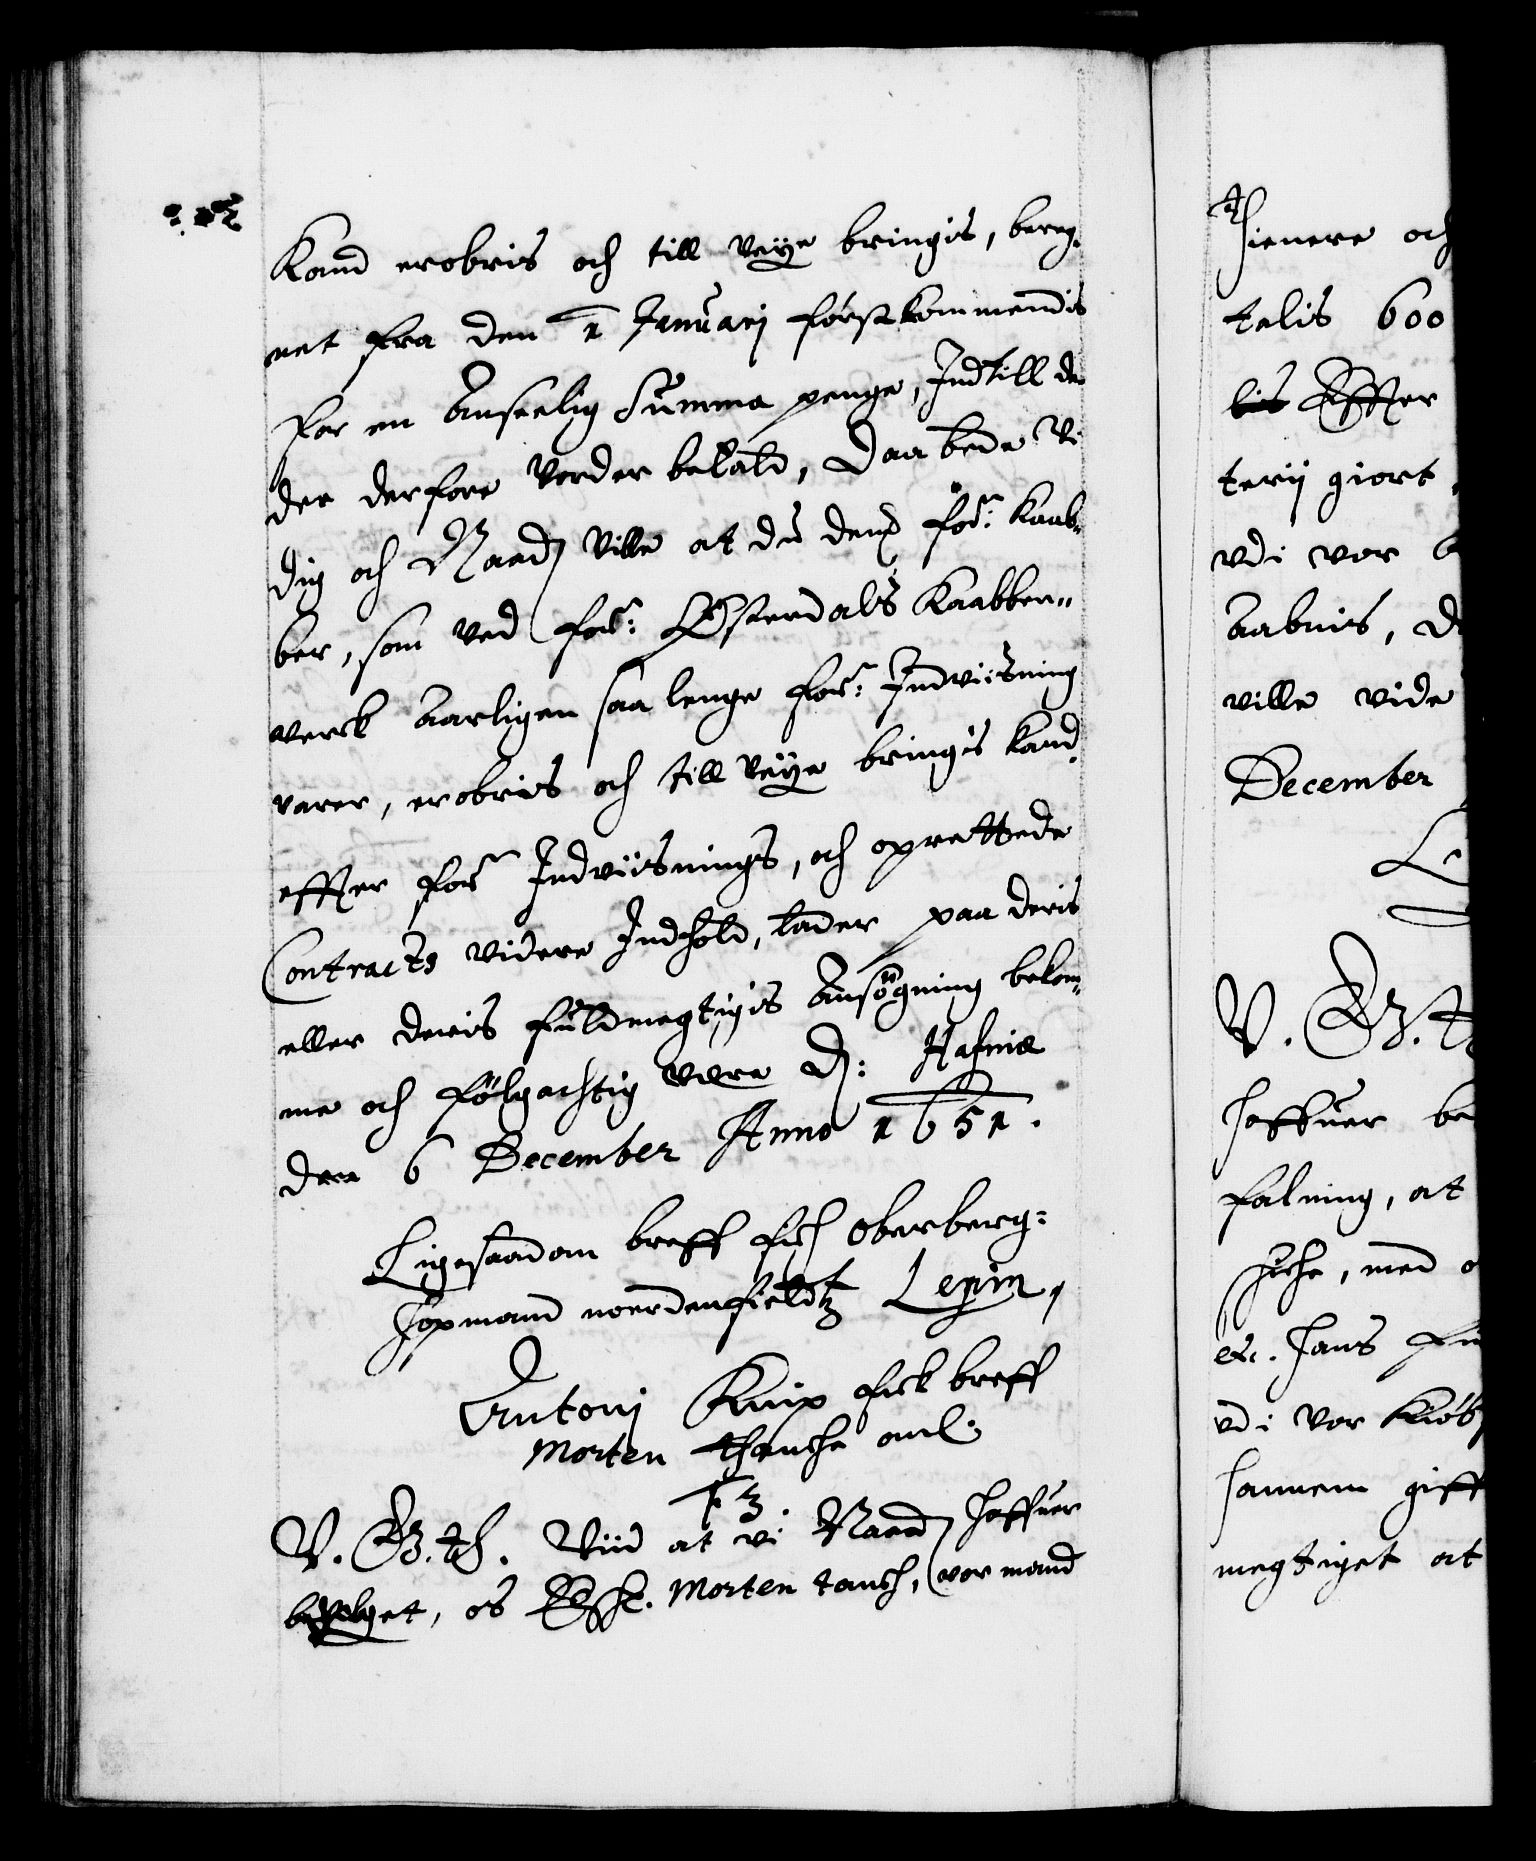 Kand erobris och till veÿe bringis, bereg¬
net fra den 1 Januarj førstkommendis
for en Anseelig Summa penge, Indtill de
der derfore Vorder betald, Daa bede Vi
dig och Naad: Ville at du dem for: Kaab¬
ber, som ved for: Østerdals Kaabber¬
verck Aarligen saa lenge for: Indviisning
varer, erobris och till Veÿe bringis kand,
effter for: Indviisnings, och oprettede
Contracts videre Indhold, lader paa deris
eller deris fuldmegtigis Ansøgning bekom¬
me och følgachtig være D: Hafniæ
den 6 December Anno 1651.
Ligesaadan breff fich Oberberg=
höpmand noerdenfieldtz Lepin,
Antonj Knip fick breff
Morten thansche anl:
F3.
V. G. th. Viid at vi Naad: haffuer
beuelget, os Elsk. Morten tansch, vor mand
thienere och
telis 600
Effter
terij giort
vdi vor
Aabnis,
ville vide
December
V. G. t
haffuer be
falning, at
med
etc. hans
vdi vor Kiøb
hannem giff
megtiget at